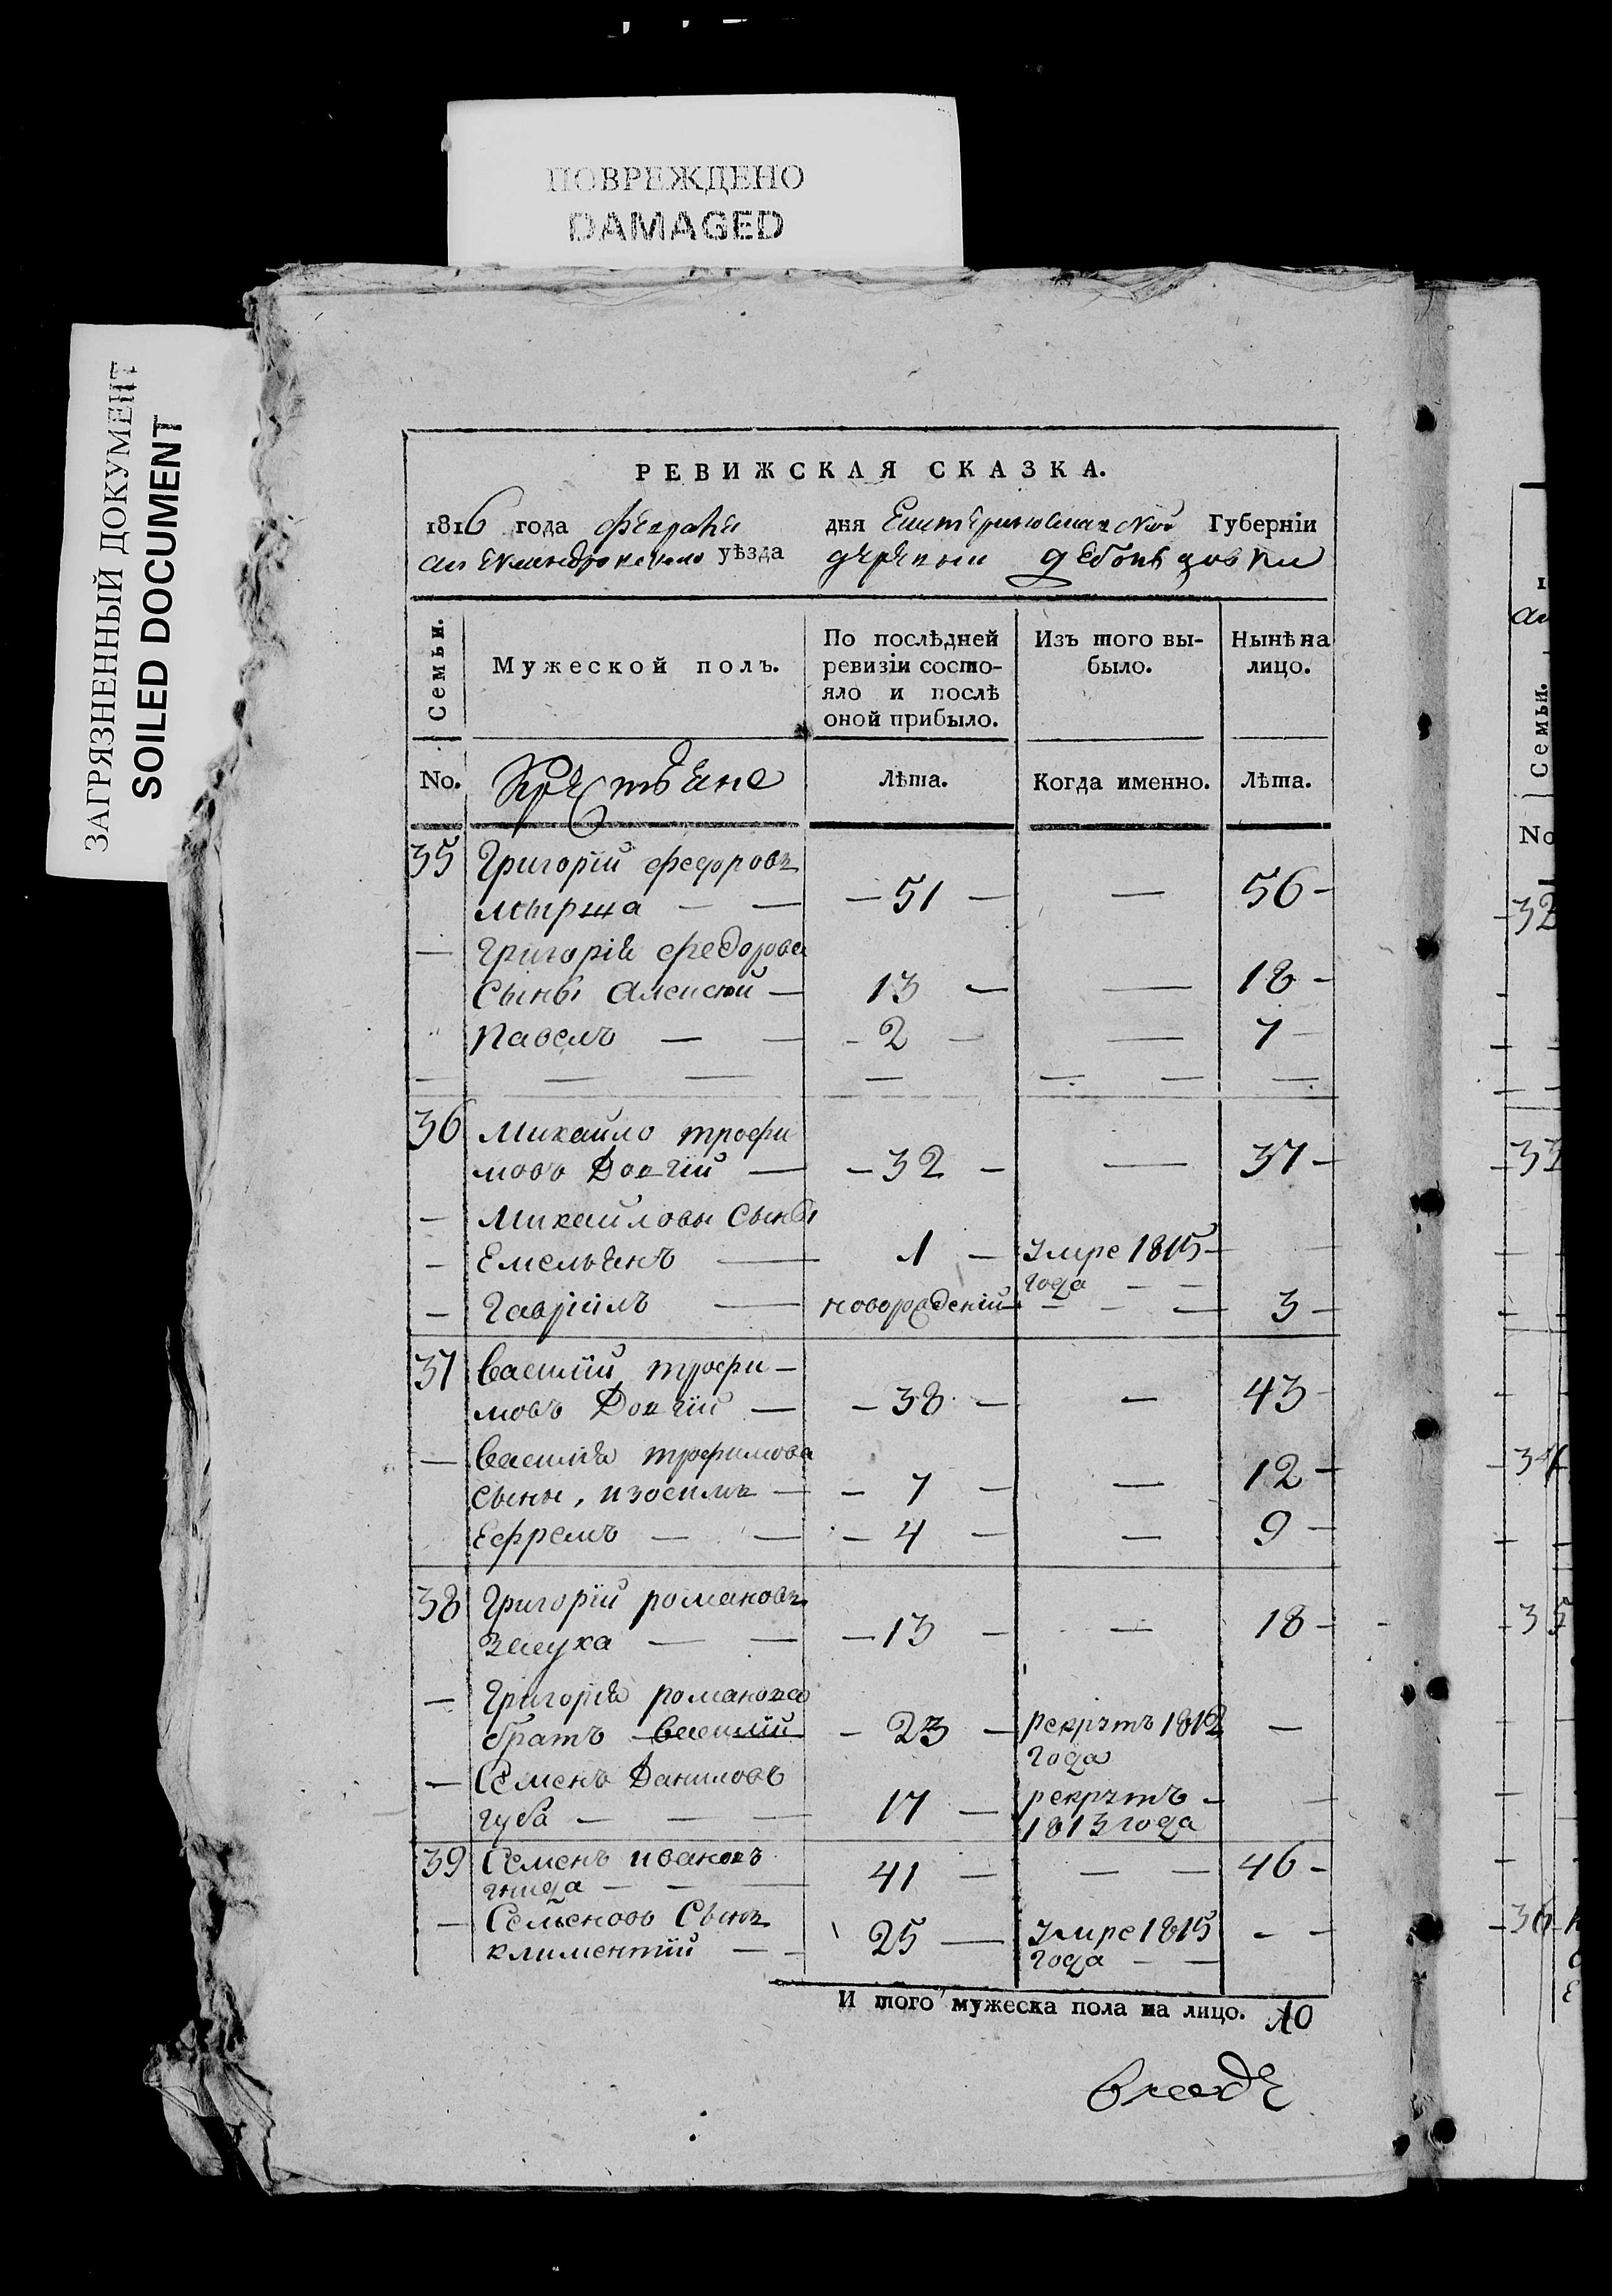 ПОВРЕЖДЕНО
DAMAGED
ЗАГРЯЗНЕННЫЙ ДОКУМЕНТ
SOILED DOCUMENT
РЕВИЖСКАЯ СКАЗКА.
1816 года февраля дня Екатеринославской Губерніи
александровскаго уѣзда деревни
Семьи. Мужеской полъ. По послѣдней ревизіи состояло и послѣ оной прибыло. Изъ того выбыло. Нынѣ на лицо.
No. Крестьяне Лѣта. Когда именно. Лѣта.
35 Григорій федоровъ
мырша — — — 51 — — 56 —
— григорія федорова
Сыны алексей — 13 — — 18 —
павелъ — — - 2 — — 7 —
36 михайло трофи
мовъ Долгій — — 32 — — 37 —
— михайловы Сыны
— Емельянъ — 1 — умре 1815 —
года — —
— гавріилъ — новорожденій — — — 3 —
37 василій трофи —
мовъ Долгій — — 38 — — 43 —
— василія трофимова
сыны, изосимъ — — 7 — — 12 —
Ефремъ — — — 4 — — 9 —
38 Григорій романовъ
— — — 13 — — 18 —
— Григорія романова
братъ василій — 23 — рекрутъ 1812 —
года
— Семенъ Даниловъ
губа — — — 17 — рекрутъ —
1813 года
39 Семенъ ивановъ
гнида — — — 41 — — — 46 —
— Семеновъ Сынъ
климентій — — 25 — умре 1815 — —
года — —
И того мужеска пола на лицо. 10
Семьи.
No
32
33
34
35
36